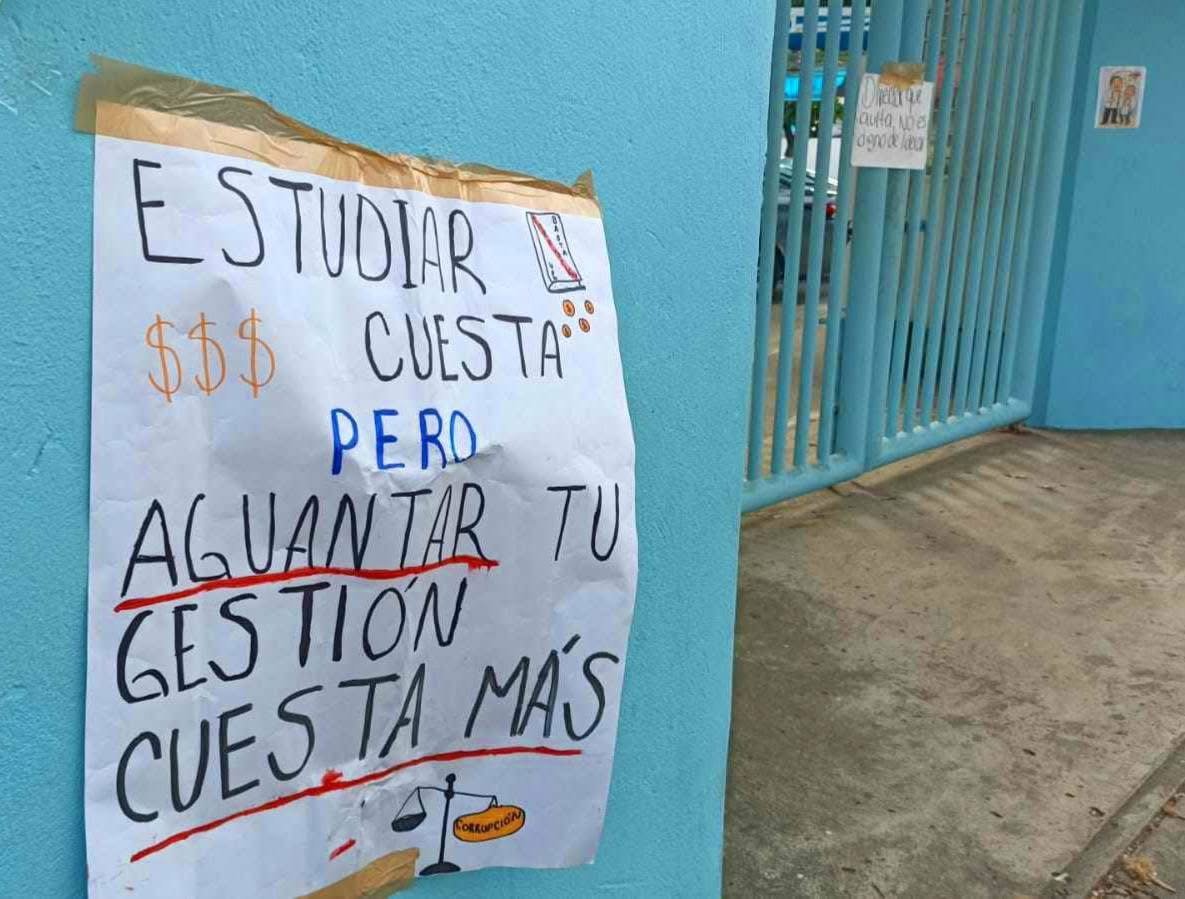 ESTUDIAR
BASTA
$$$ CUESTA
PERO
AGUANTAR TU
GESTIÓN
CUESTA MÁS
CORRUPCIÓN
que
oculta, NO es
digno de liderar